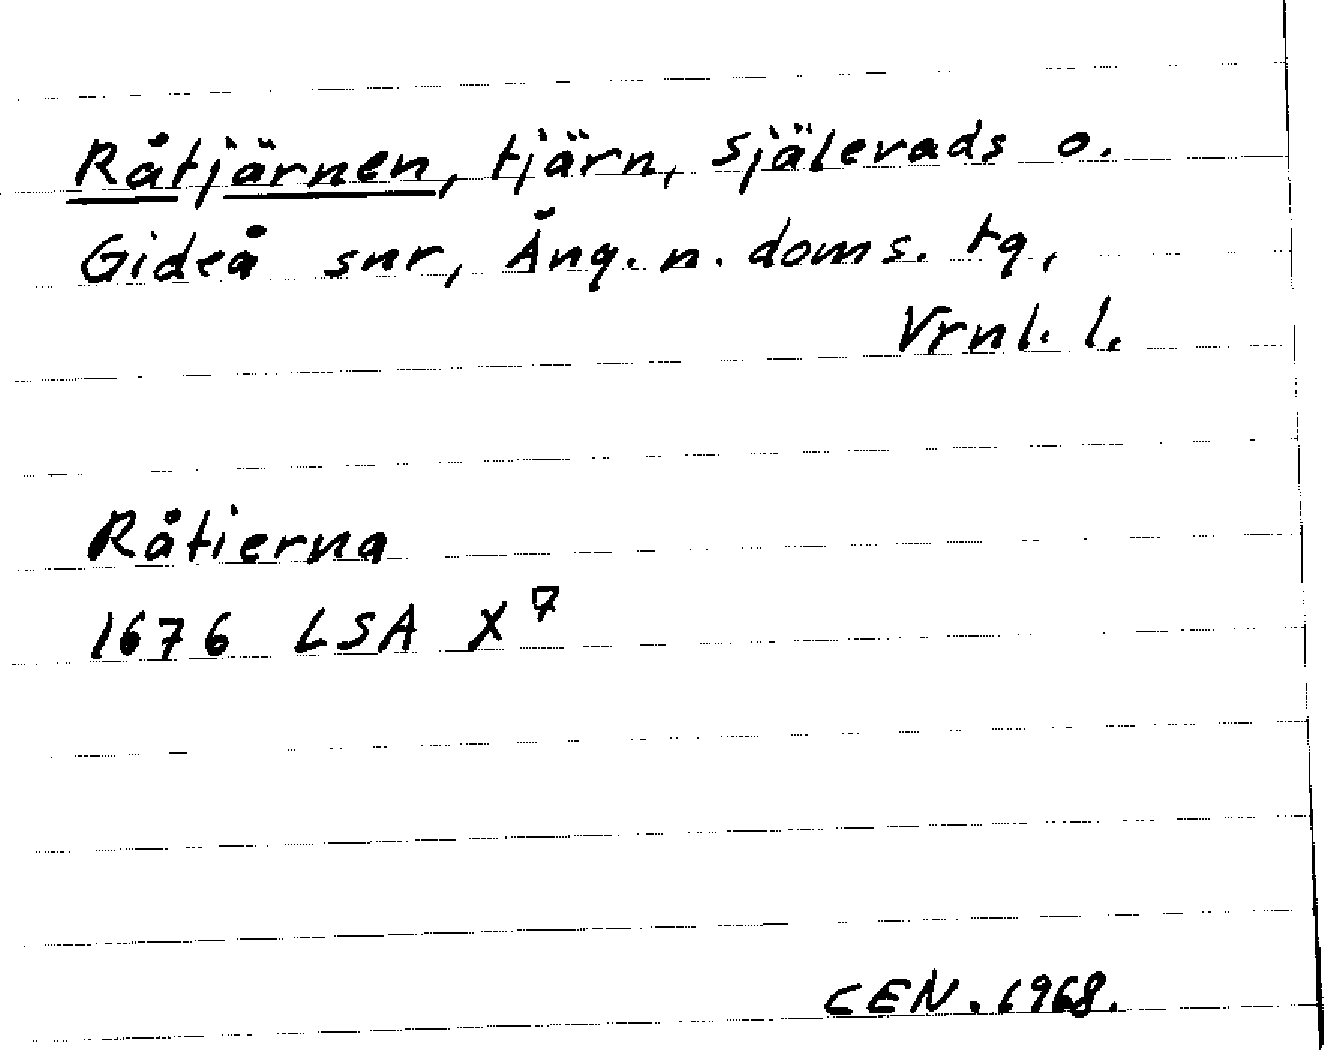 Råtjärnen, tjärn, Själevads o.
Gideå snr, Ång. n. doms. tg,
Vrnl. l.
Råtierna
1676 LSA X⁷
CEN. 1968.